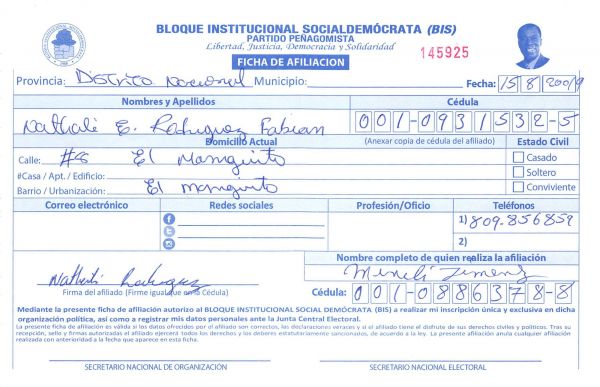 BLOQUE INSTITUCIONAL SOCIALDEMÓCRATA (BIS)
PARTIDO PEÑAGOMISTA
Libertad, Justicia, Democracia y Solidaridad
FICHA DE AFILIACION
145925
Provincia: Distrito Nacional Municipio: Fecha: 15/8/2009
Nombres y Apellidos Cédula
Nathali E. Rodriguez Fabian 001-0931532-5
Domicilio Actual (Anexar copia de cédula del afiliado) Estado Civil
Calle: #8 El Manguito Casado
#Casa / Apt. / Edificio: Soltero
Barrio / Urbanización: El manguito Conviviente
Correo electrónico Redes sociales Profesión/Oficio Teléfonos
1) 809-856859
2)
Nombre completo de quien realiza la afiliación
Nathali Rodriguez Jimenez
Firma del afiliado (Firme igual que en la Cédula) Cédula: 001-0886378-8
Mediante la presente ficha de afiliación autorizo al BLOQUE INSTITUCIONAL SOCIAL DEMÓCRATA (BIS) a realizar mi inscripción única y exclusiva en dicha
organización política, así como a registrar mis datos personales ante la Junta Central Electoral.
La presente ficha de afiliación es válida si los datos ofrecidos por el afiliado son correctos, las declaraciones veraces y si el afiliado tiene el disfrute de sus derechos civiles y políticos. Tras su
recepción, sello y firmas autorizadas el afiliado ejercerá todos los derechos y los deberes estatutariamente sancionados, de acuerdo a la ley. La presente afiliación anula cualquier afiliación
realizada con anterioridad a la fecha que aparece en esta ficha.
SECRETARIO NACIONAL DE ORGANIZACIÓN SECRETARIO NACIONAL ELECTORAL